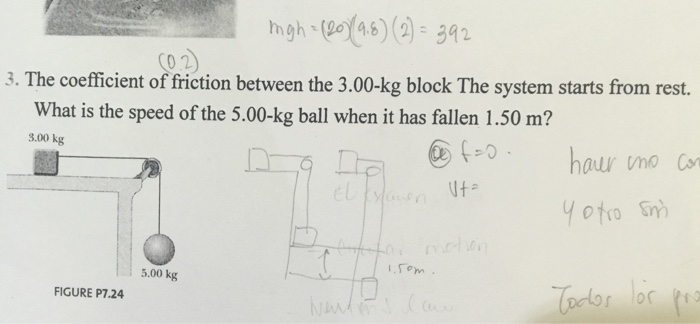 mgh = (20)(9.8)(2) = 392
(0.2)
3. The coefficient of friction between the 3.00-kg block The system starts from rest.
What is the speed of the 5.00-kg ball when it has fallen 1.50 m?
3.00 kg
f=0.
Vf=
1.50m.
5.00 kg
FIGURE P7.24
y otro sin
Todos los